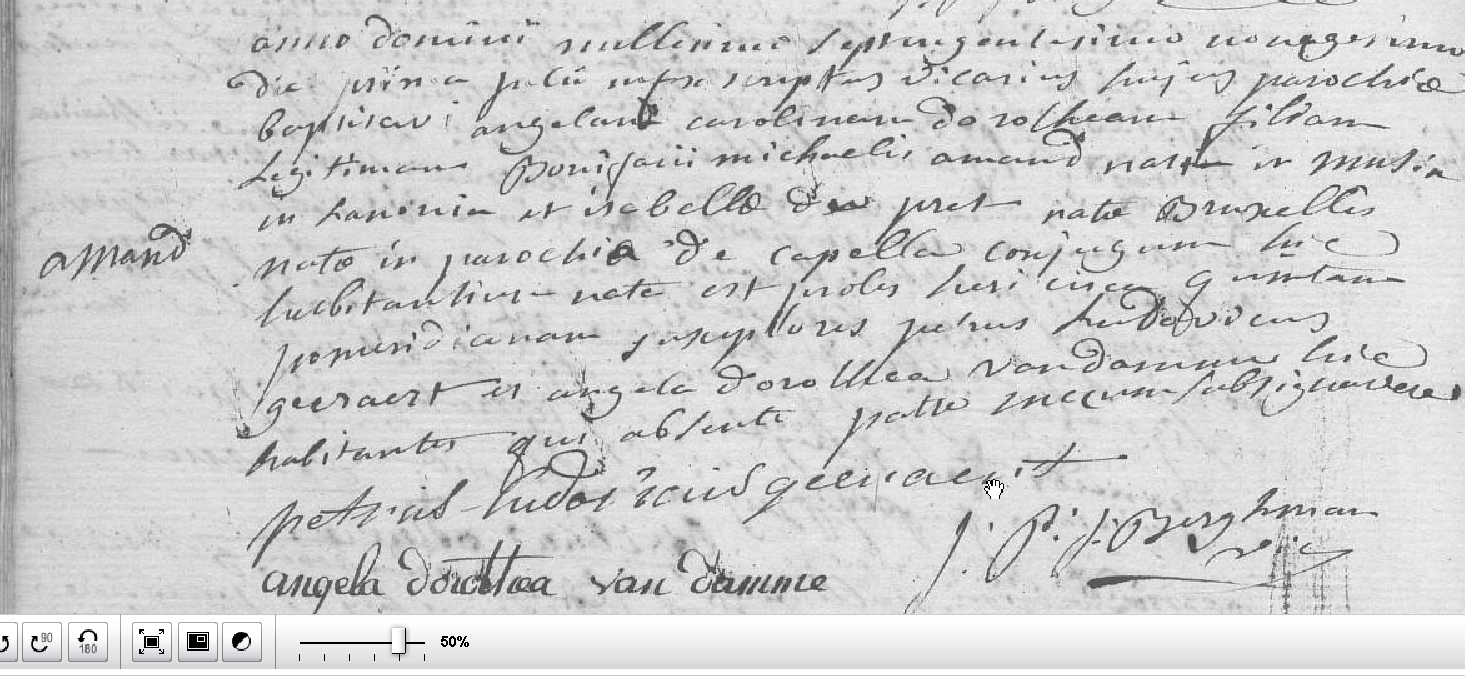 anno domini millesimo septingentesimo nonagesimo
die prima julii infrascriptus vicarius hujus parochiæ
baptisavi angelam carolinam dorotheam filiam
legitimam Bonifacii michaelis amand nati in
in hanonia et isabellæ de pret natæ Bruxellis
amand
natæ in parochia de capella conjugum hic
habitantium nata est proles heri circa quintam
pomeridianam susceptores petrus ludovicus
geeraert et angela dorothea van damme hic
habitantes qui absente patre mecum subsignavere
petrus ludovicus geeraert
J: P: J: Berghman
vic:
angela dorothea van damme
90
180
50%